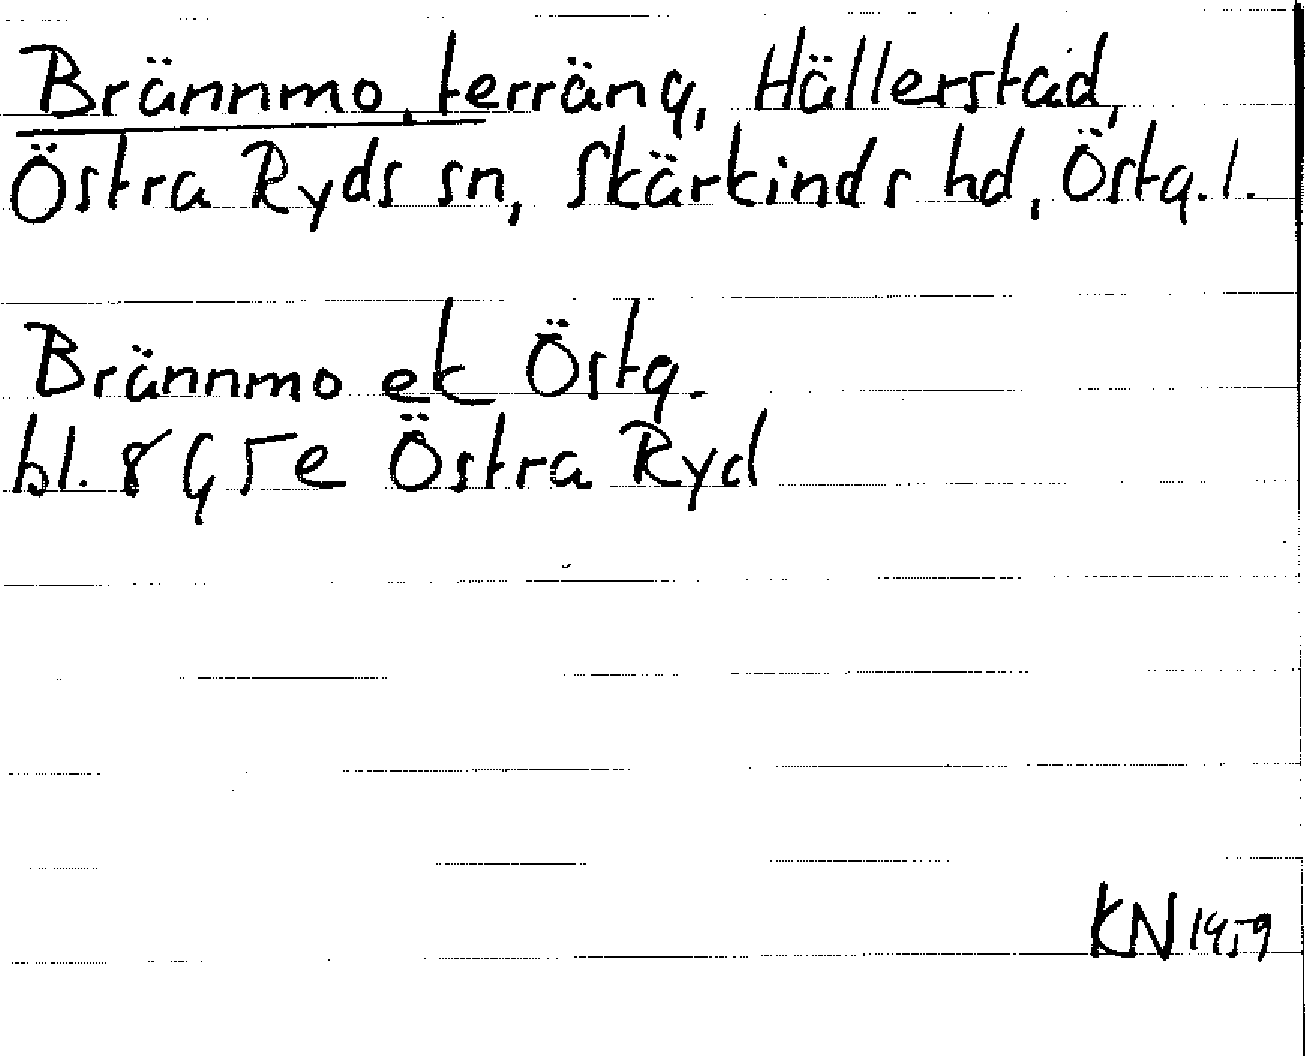 Brännmo, terräng, Hällerstad,
Östra Ryds sn, Skärkinds hd, Östg. l.
Brännmo ek Östg.
bl. 8 G 5 e Östra Ryd
KN 1959